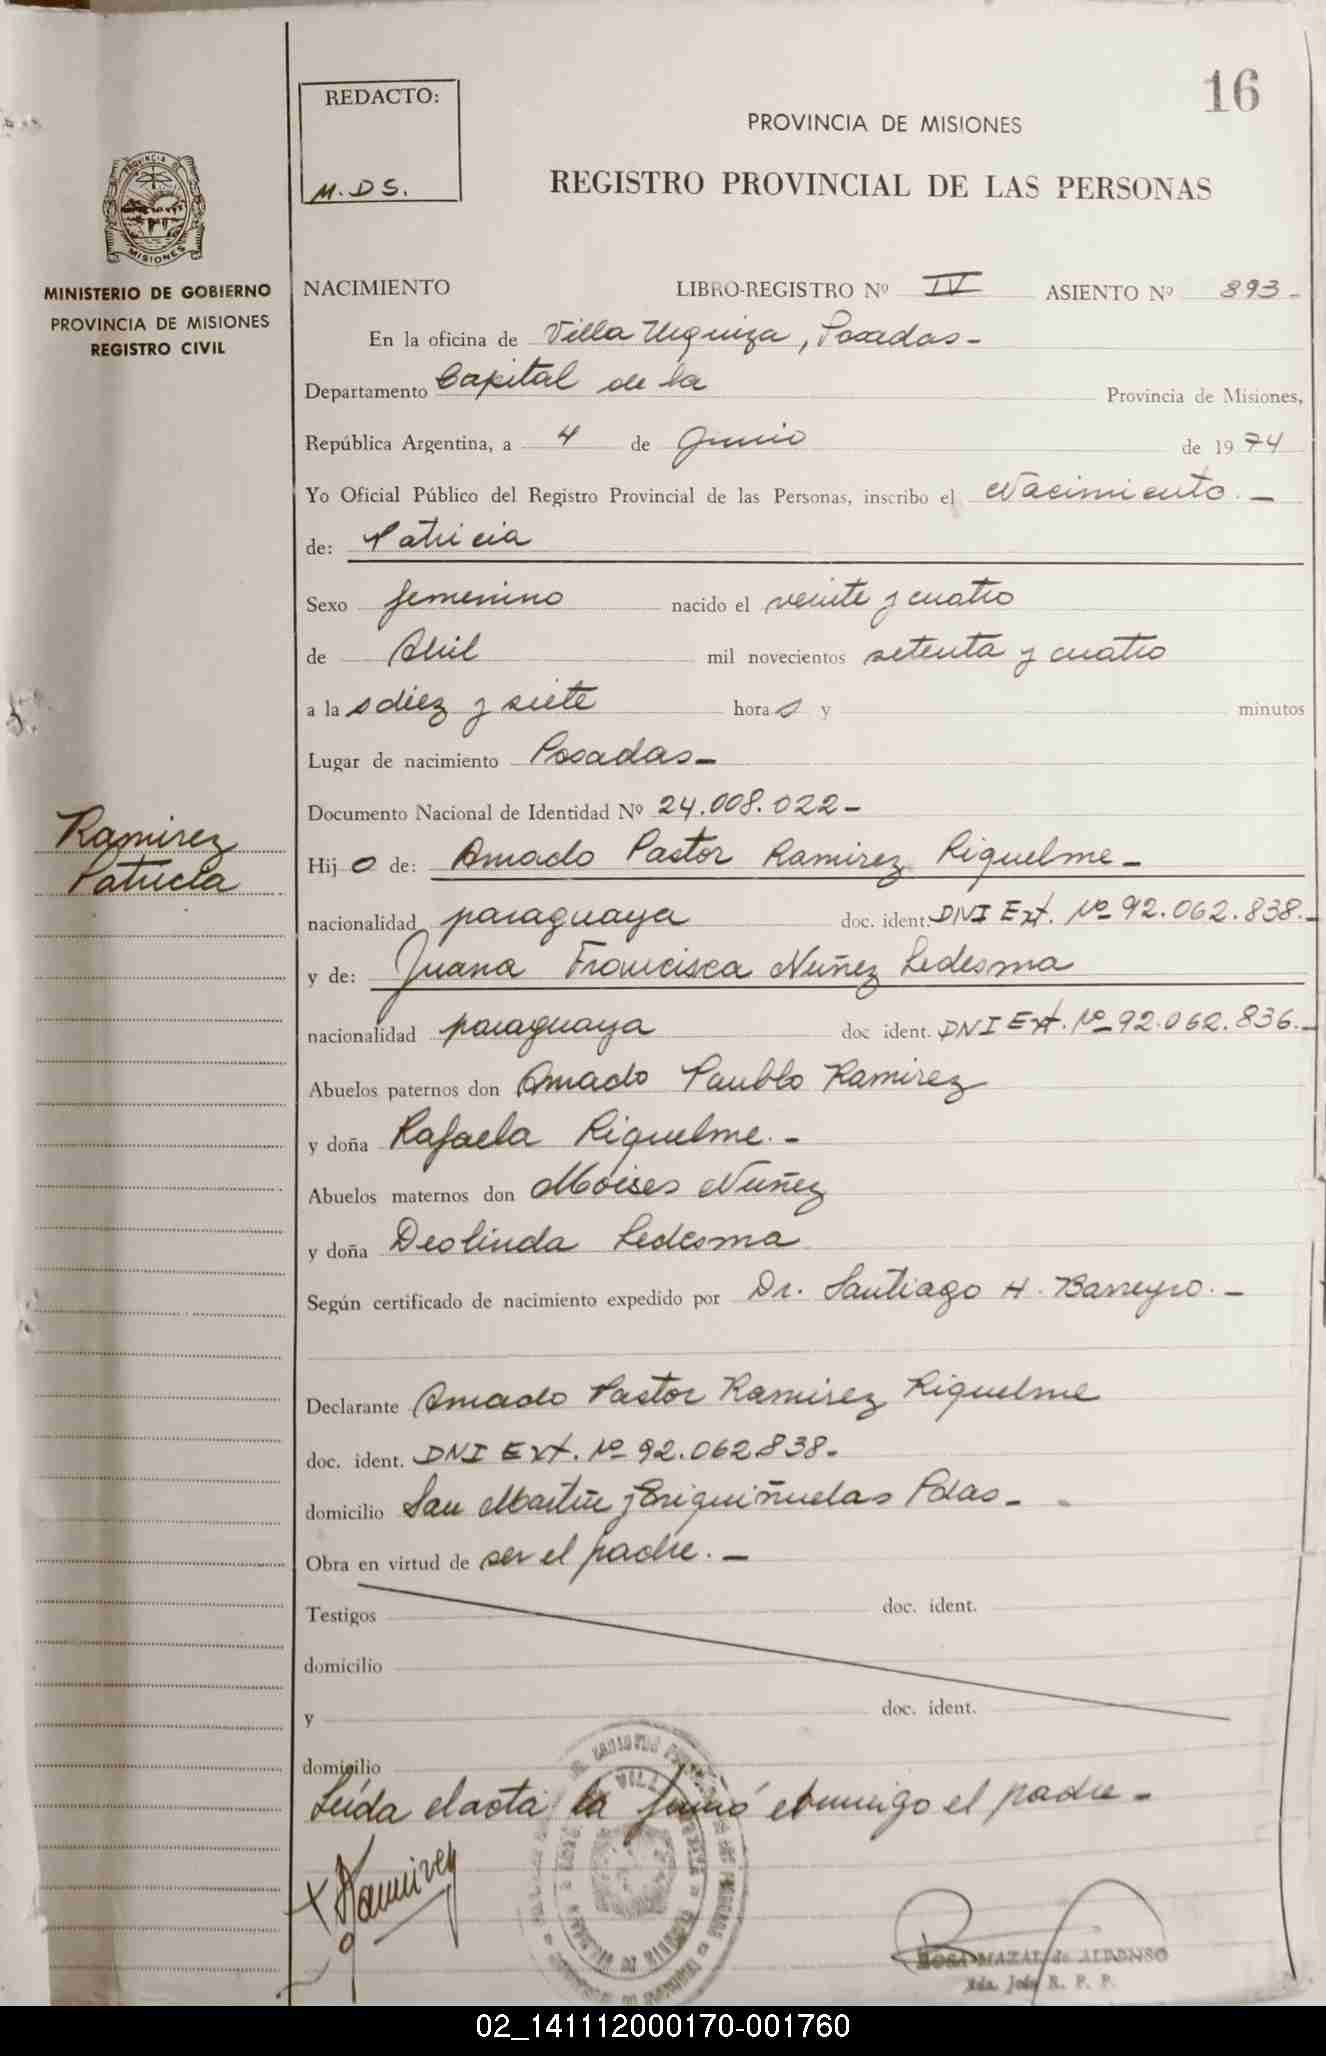 16
REDACTO:
M.DS.
PROVINCIA DE MISIONES
REGISTRO PROVINCIAL DE LAS PERSONAS
PROVINCIA DE
MISIONES
MINISTERIO DE GOBIERNO
PROVINCIA DE MISIONES
REGISTRO CIVIL
NACIMIENTO LIBRO-REGISTRO Nº IV ASIENTO Nº 893-
En la oficina de Villa Urquiza, Posadas-
Departamento Capital de la Provincia de Misiones,
República Argentina, a 4 de Junio de 1974
Yo Oficial Público del Registro Provincial de las Personas, inscribo el Nacimiento.-
de: Patricia
Sexo femenino nacido el veinte y cuatro
de Abril mil novecientos setenta y cuatro
a las diez y siete horas y minutos
Lugar de nacimiento Posadas-
Documento Nacional de Identidad Nº 24.008.022-
Ramirez
Patricia
Hijo de: Amado Pastor Ramirez Riquelme-
nacionalidad paraguaya doc. ident. DNI Ext. Nº 92.062.838.-
y de: Juana Francisca Nuñez Ledesma
nacionalidad paraguaya doc ident. DNI Ext. Nº 92.062.836.-
Abuelos paternos don Amado Paublo Ramirez
y doña Rafaela Riquelme.-
Abuelos maternos don Moises Nuñez
y doña Deolinda Ledesma
Según certificado de nacimiento expedido por Dr. Santiago H. Barreyro.-
Declarante Amado Pastor Ramirez Riquelme
doc. ident. DNI Ext. Nº 92.062.838-
domicilio San Martin y Pdas-
Obra en virtud de ser el padre.-
Testigos doc. ident.
domicilio
y doc. ident.
domicilio
Leída el acta la firmó conmigo el padre-
Ramirez
ROSA MAZAL de ALFONSO
R. P. P.
02_141112000170-001760